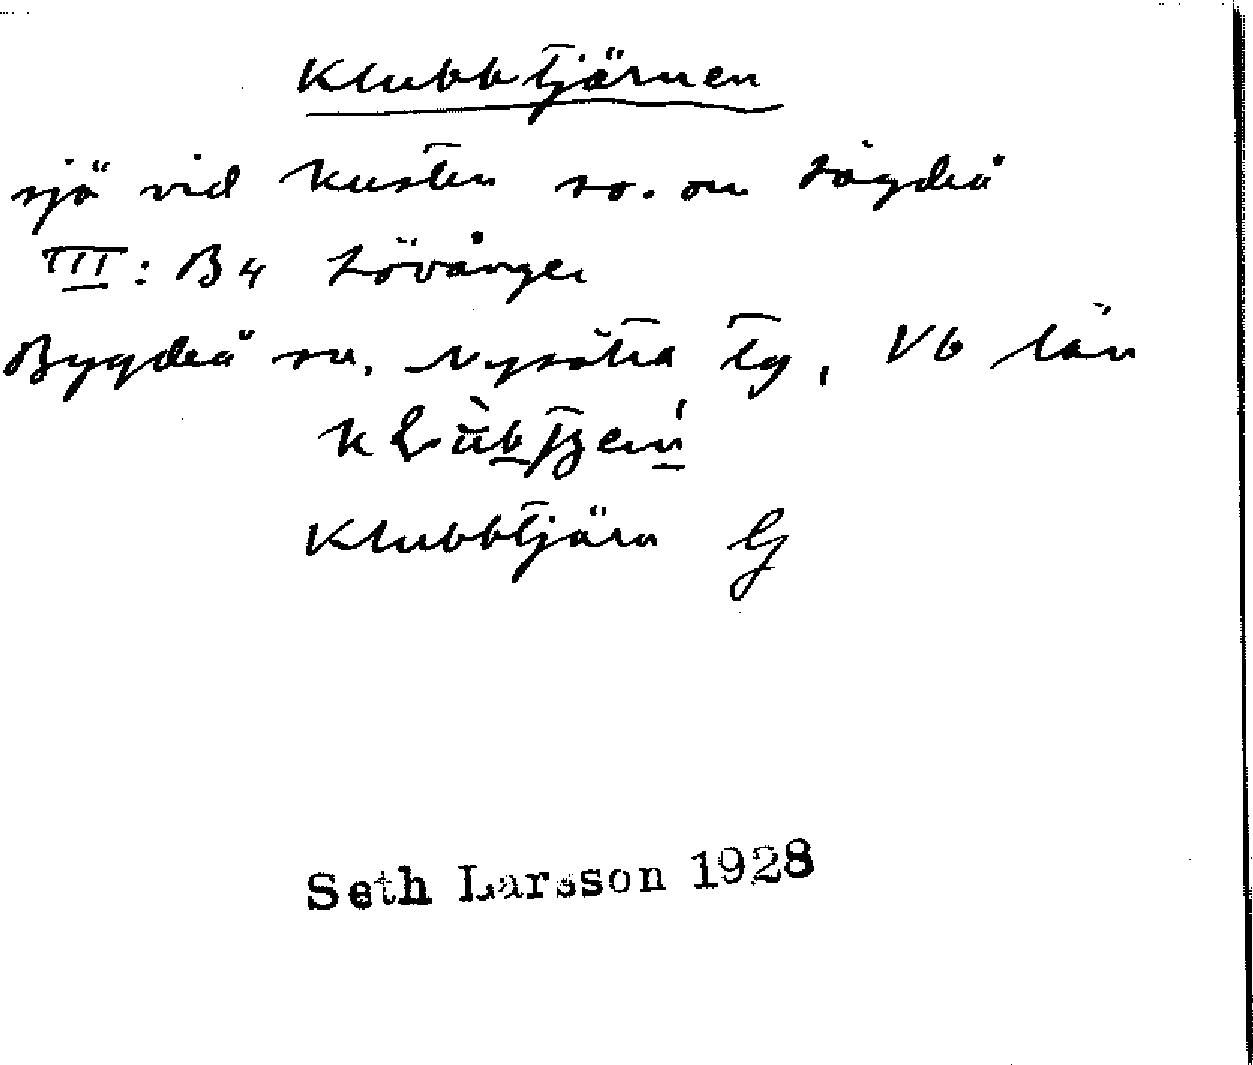 Klubbtjärnen
sjö vid kusten so. om Lägdeå
III: B4 Lövånger
Bygdeå sn, Nysätra tg, Vb län
Klubbtjärn G
Seth Larsson 1928